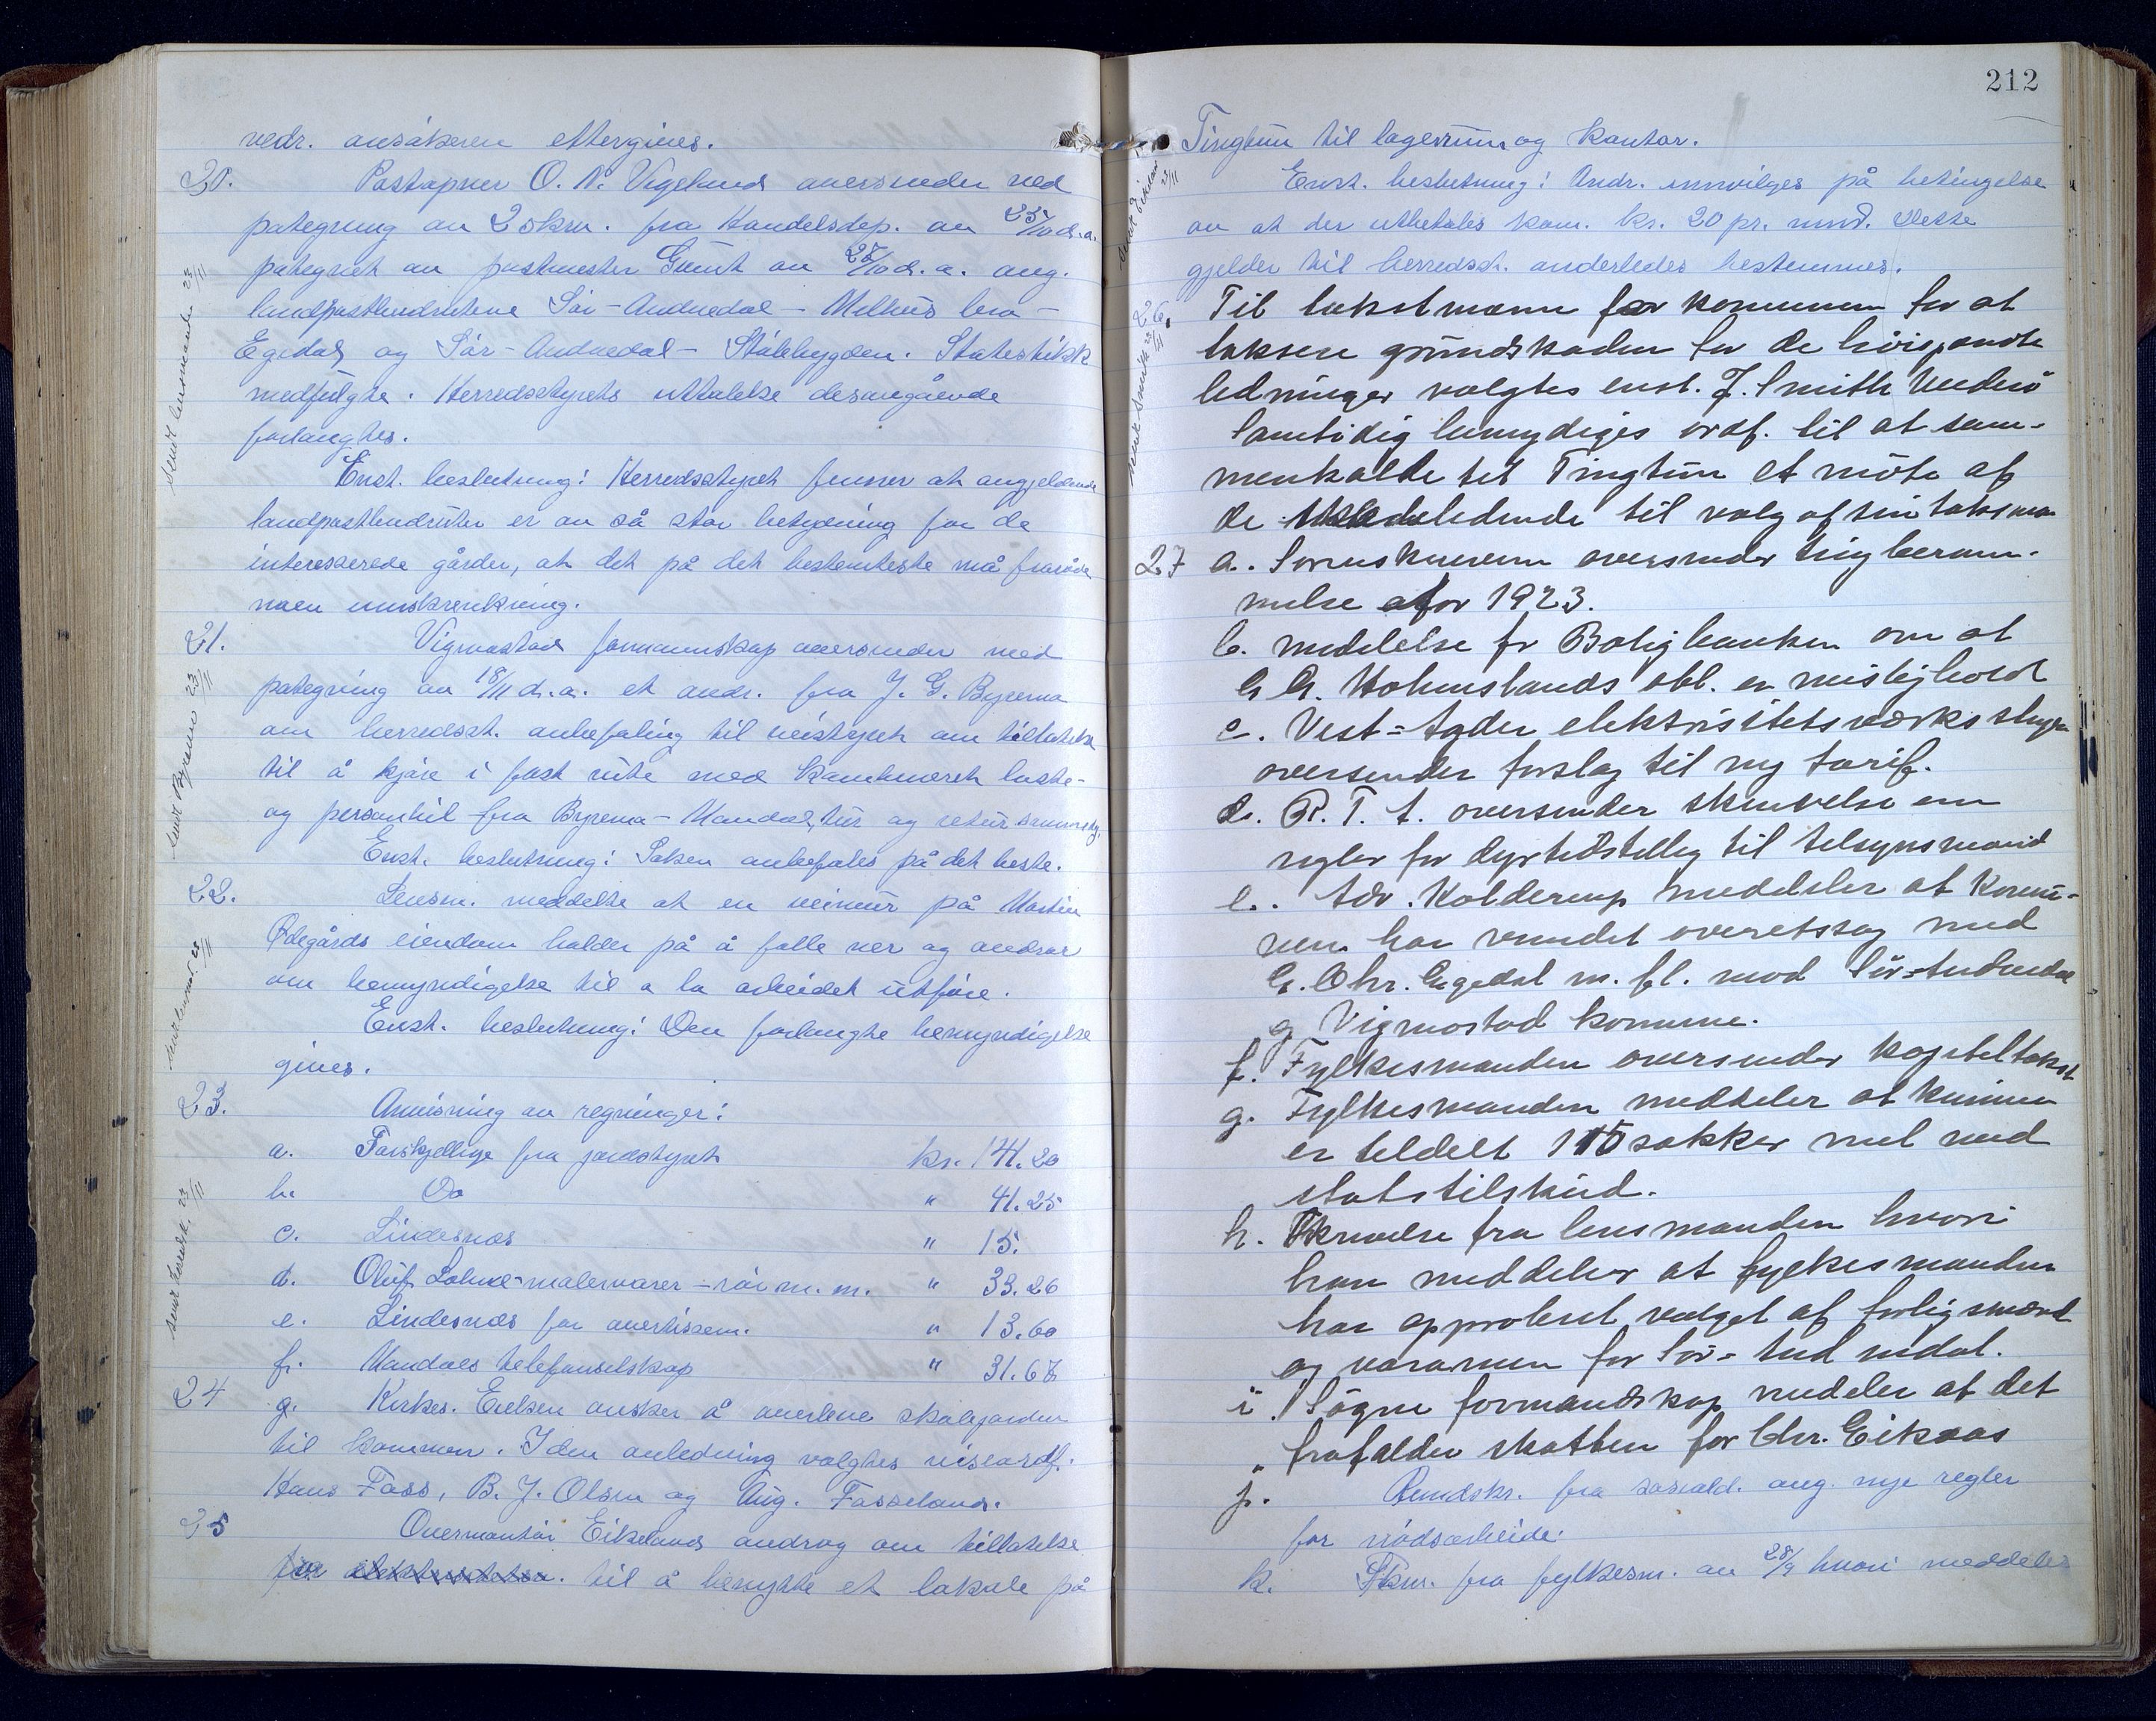 vedr. ansökeren eftergives.
20. Postopner O. N. Vigeland oversender ved
påtegning av 2 skrv. fra Handelsdep. av 25/10 d.a.
påtegnet av postmester Grimt av 28/10 d.a. ang.
landpostbudrutene Sör-Audnedal - Melhus bro -
Egedal og Sör-Audnedal - Ståbbygden. Statistikk
medfulgte. Herredsstyrets uttalelse desangående
forlangtes.
Enst. beslutning: Herredsstyret finner at angjeldende
landpostbudruter er av så stor betydning for de
interesserede gårder, at det på det bestemteste må fraråde
noen innskrenkning.
sendt lensmanden 23/11
21. Vigmostad formannskap oversender med
påtegning av 18/11 d.a. et andr. fra J. G. Byremo
om herredsst. anbefaling til veistyret om tillatelse
til å kjøre i fast rute med kombinert laste-
og personbil fra Byremo - Mandal, tur og retur
Enst. beslutning: Saken anbefales på det beste.
sendt Byremo 23/11
22. Lensm. meddelte at en veimur på Martin
Ødegårds eiendom holder på å falle ner og andror
om bemyndigelse til a la arbeidet utføre.
Enst. beslutning: Den forlangte bemyndigelse
gives.
23. Anvisning av regninger:
a. Forskjellige fra jordstyret kr. 141.20
b. Do " 41.25
c. Lindesnes " 15.
d. Oluf Lohne - malervarer - rör m. m. " 33.26
e. Lindesnes for avertissem. " 13.60
f. Mandals telefonselskap " 31.67
24 g. Kirkes. Eielsen ønsker å overlevere skolejorden
til kommunen. I den anledning valgtes viseordf.
Hans Foss, B. J. Olsen og Aug. Fasseland.
25 Overmontör Eikeland androg om tillatelse
til å benytte et lokale på
212
Tingtun til lagerrum og kontor.
Enst. beslutning: Andr. innvilges på betingelse
av at der utbetales kom. kr. 20 pr. mnd. Dette
gjelder til herredsst. anderledes bestemmes.
26. Til takstmann for kommunen for at
taksere grundskaden for de höispændte
ledninger valgtes enst. J. Smith Underö
Samtidig bemydiges ordf. til at sam-
menkalde til Tingtun et möte af
de vedkommende til valg af sin taksman
27 a. Sorenskriveren oversender tingberam-
melse for 1923.
b. meddelelse fr Boligbanken om at
G. A. Holmslands obl. er misligholdt
c. Vest-Agder elektrisitetsverks styre
oversender forslag til ny tarif.
d. R. T. A. oversender skrivelse om
regler for dyrtidstillæg til tilsynsmænd
e. Adv. Kolderup meddeler at Kommu-
nen har vundet overetssag med
G. Chr. Egedal m. fl. mod Sör-Audnedal
og Vigmostad komune.
f. Fylkesmanden oversender kapitaltakst
g. Fylkesmanden meddeler at kommunen
er tildelt 115 sækker mel med
statstilskud.
h. Skrivelse fra lensmanden hvori
han meddeler at fylkesmanden
har approbert valget af forligsmænd
og varamen for Sör-Audnedal.
i. Sögne formandskap meddeler at det
frafalder skatten for Chr. Eikaas
j. Rundskr. fra sosiald. ang. nye regler
for nödsarbeide.
k. Skriv. fra fylkesm. av 28/9 hvori meddeles